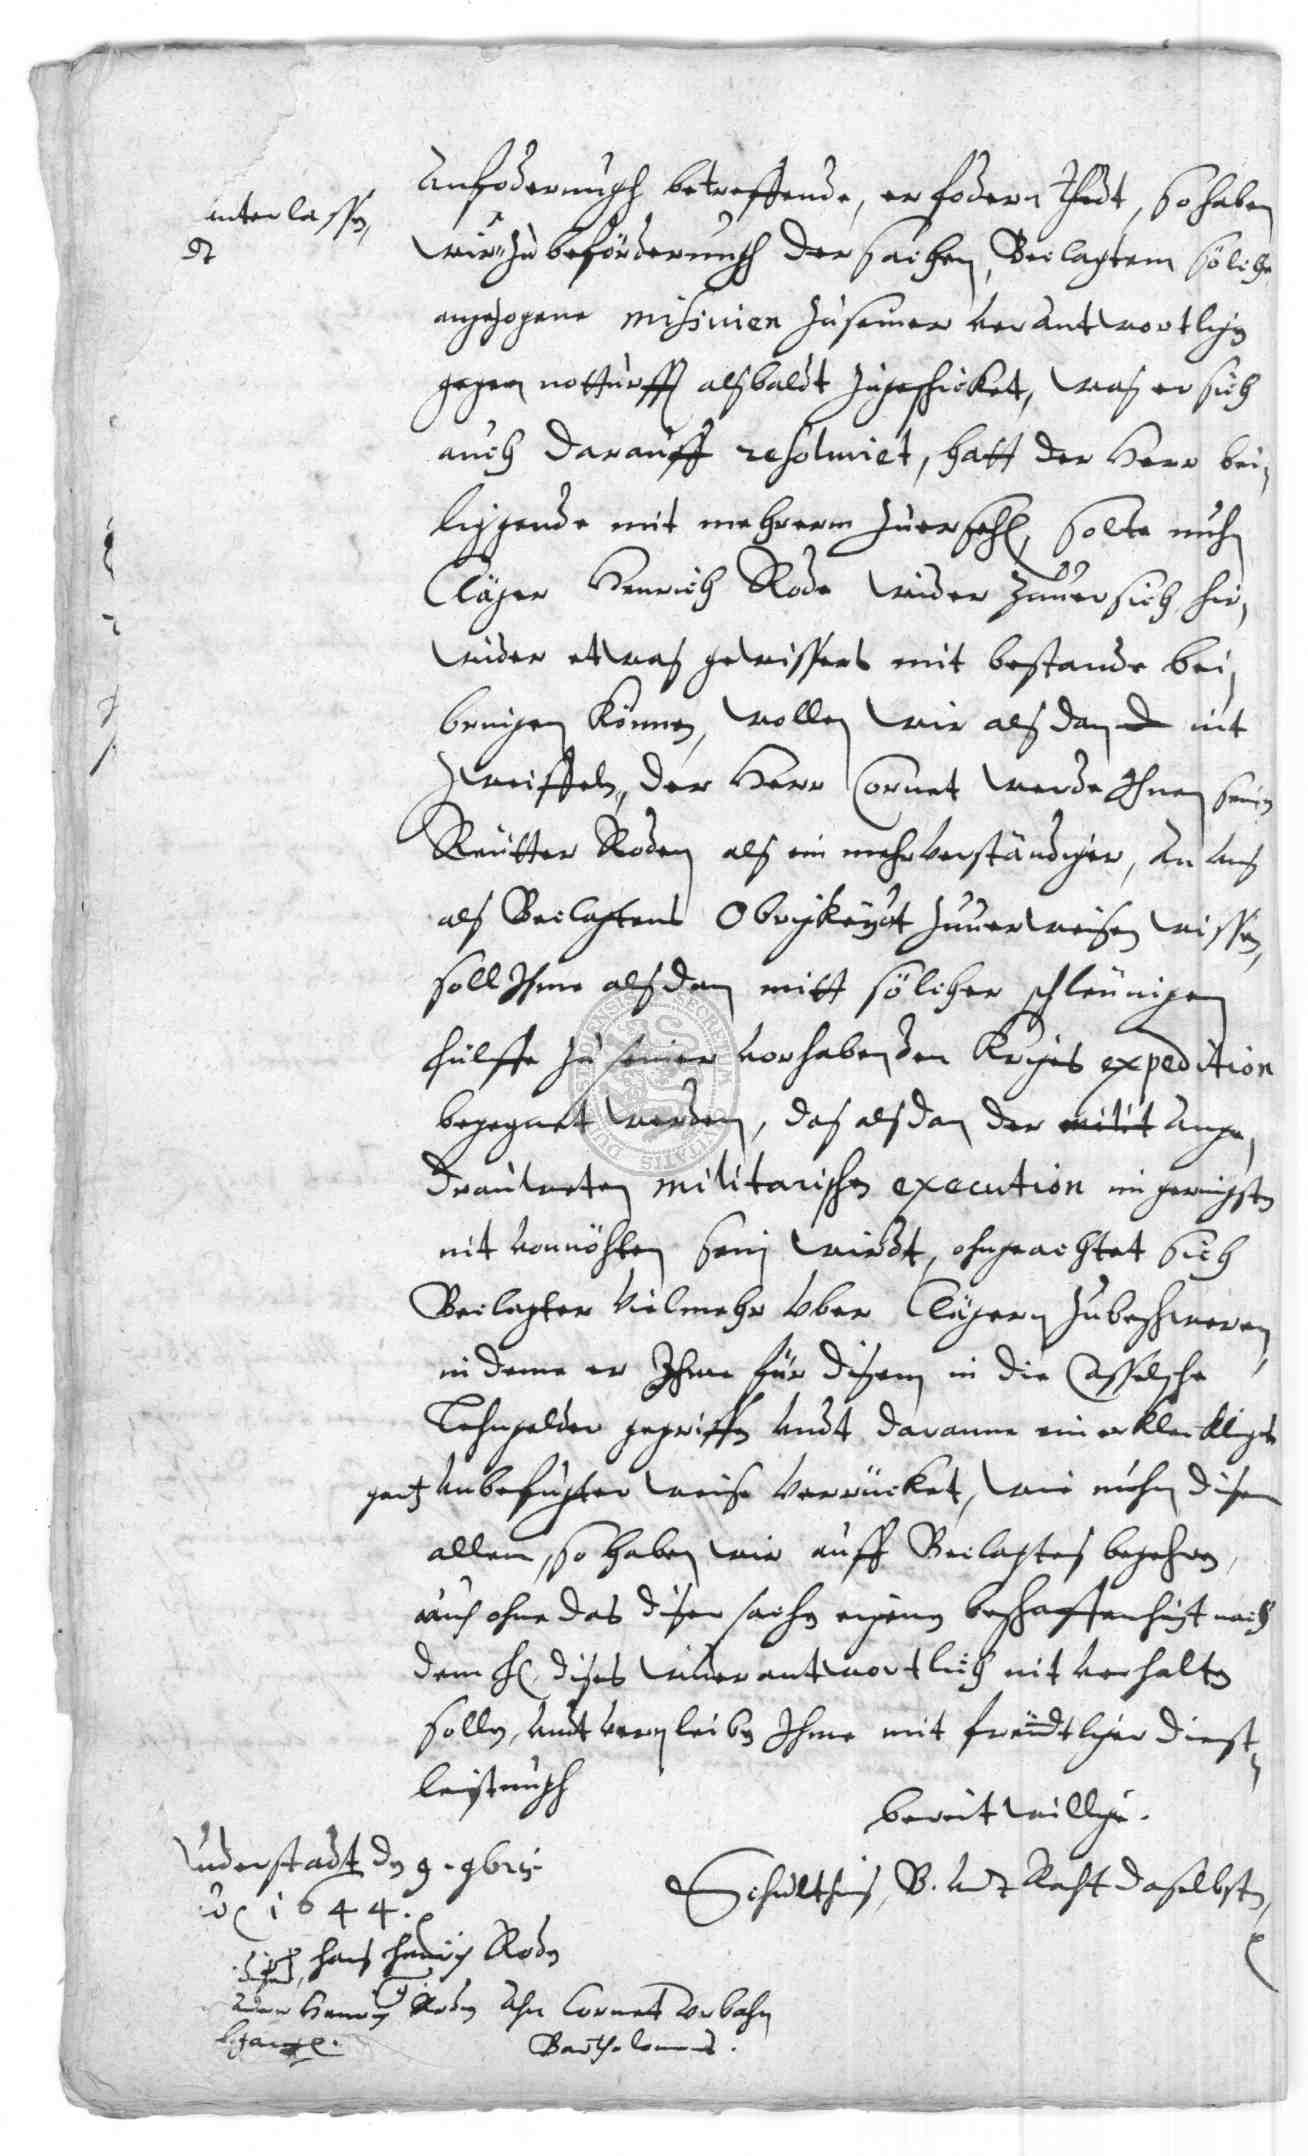 anfoderungh betreffende, erfodern thudt, so haben
unterlassen,
wir zu beförderungh der sachen, Beclagtem sölche
angezogene missiven zu seiner verantwortlichen
gegen notturfft alsbaldt zugeschicket, was er sich
auch darauff resolviret, hatt der Herr bei,
liggende mit mehrerm zuersehen, solte nuhn
Cläger Henrich Rode wider zuuersich hir,
wider etwas gewissers mit bestande bei,
bringen können, wollen wir alsdan nit
zweiffeln, der Herr Cornet werde Ihnen seinen
Reütter Roden als ein mehrverständiger, an uns
als Beclagtens Obrigkeydt zuuerweisen wissen,
soll Ihme alsdan mitt sölcher schleünigen
hülffe zu seiner vorhabenden Krigs expedition
begegnet werden, das alsdan der milit ange,
drauweten militarischen execution im geringsten
nit vonnöhten sein wirdt, ohngeachtet sich
Beclagter vielmehr über Clägern zubeschweren,
in deme er Ihme für disem in die Casselsche
Lehngelder gegriffen undt daranne ein erkleckliges
gantz unbefugter weise verrücket, wie nuhn disem
allem, so haben wir auff Beclagtes begehren,
auch ohne das diser sachen eigenen beschaffenheit nach
dem H. dises unverantwortlich nit verhalten
sollen, undt verpleiben Ihme mit freündtliger dienst,
leistungh
bereitwillige.
Duderstadt den 9. 9bris
1644.
Schulthis, B. undt Raht daselbsten
Hans Henrich Roden
Henrich Roden Ahn Cornet Urbahn
Bartholomeus.